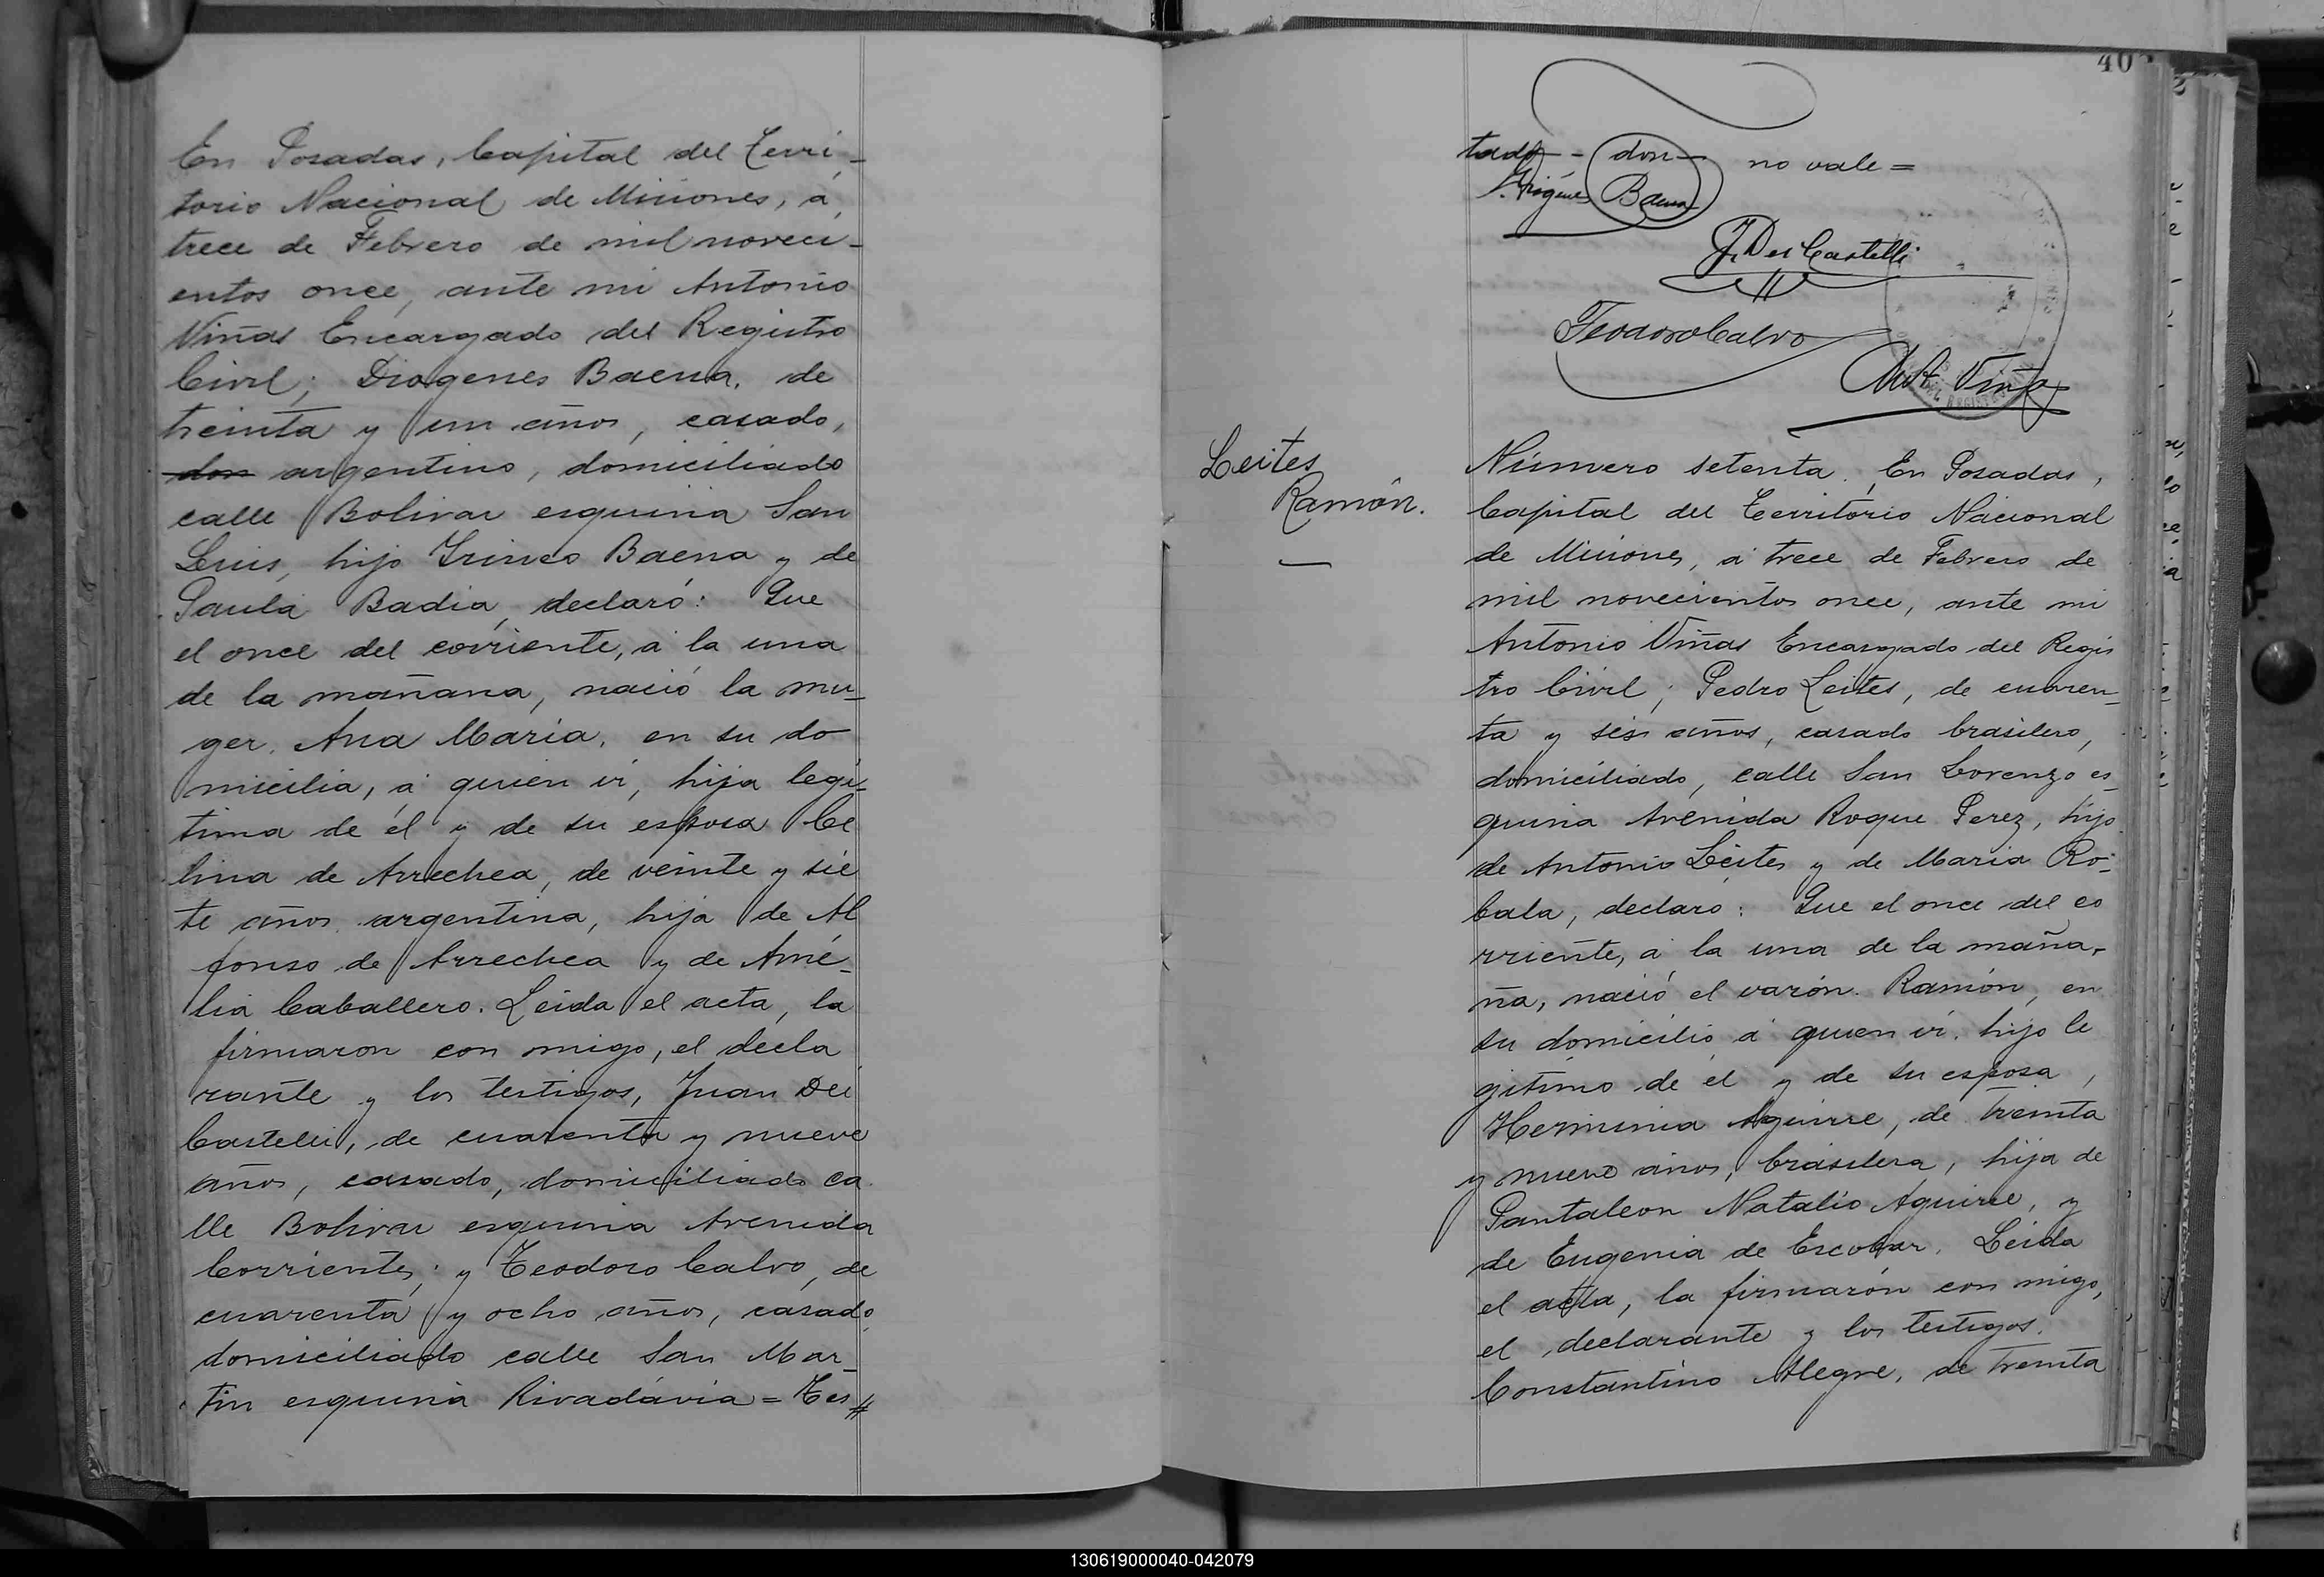 En Posadas, Capital del Terri-
torio Nacional de Misiones, á
trece de Febrero de mil noveci-
entos once, ante mi Antonio
Viñas Encargado del Registro
Civil; Diogenes Baena, de
treinta y un años, casado,
don argentino, domiciliado
calle Bolivar esquina San
Luis, hijo Irineo Baena y de
Paula Badia, declaró: Que
el once del corriente, á la una
de la mañana, nació la mu-
ger, Ana Maria, en su do
micilia, á quien ví, hija legi-
tima de él y de su esposa Ce
lina de Arrechea, de veinte y sie
te años, argentina, hija de Al
fonso de Arrechea y de Amé-
lia Caballero. Leida el acta, la
firmaron con migo, el decla
rante y los testigos, Juan Dei
Castelli, de cuarenta y nueve
años, casado, domiciliado ca
lle Bolivar esquina Avenida
Corrientes; y Teodoro Calvo, de
cuarenta y ocho años, casado,
domiciliado calle San Mar-
tin esquina Rivadavia = Tes#
40
tado - don - no vale =
Baena
J. Dei Castelli
Teodoro Calvo
Ant Viñas
Leites
Ramón.
Número setenta. En Posadas,
Capital del Territorio Nacional
de Misiones, á trece de Febrero de
mil novecientos once, ante mi
Antonio Viñas Encargado del Regis
tro Civil; Pedro Leites, de cuaren-
ta y seis años, casado brasilero,
domiciliado, calle San Lorenzo es-
quina Avenida Roque Perez, hijo
de Antonio Leites y de Maria Ro-
bala, declaró: Que el once del co
rriente, á la una de la maña-
ña, nació el varón. Ramón, en
su domicilio á quien ví, hijo le
gitimo de él y de su esposa,
Herminia Aguirre, de treinta
y nueve años, brasilera, hija de
Pantaleon Natalio Aguirre, y
de Eugenia de Escobar. Leida
el acta, la firmarón con migo,
el declarante y los testigos.
Constantino Alegre, de treinta
130619000040-042079